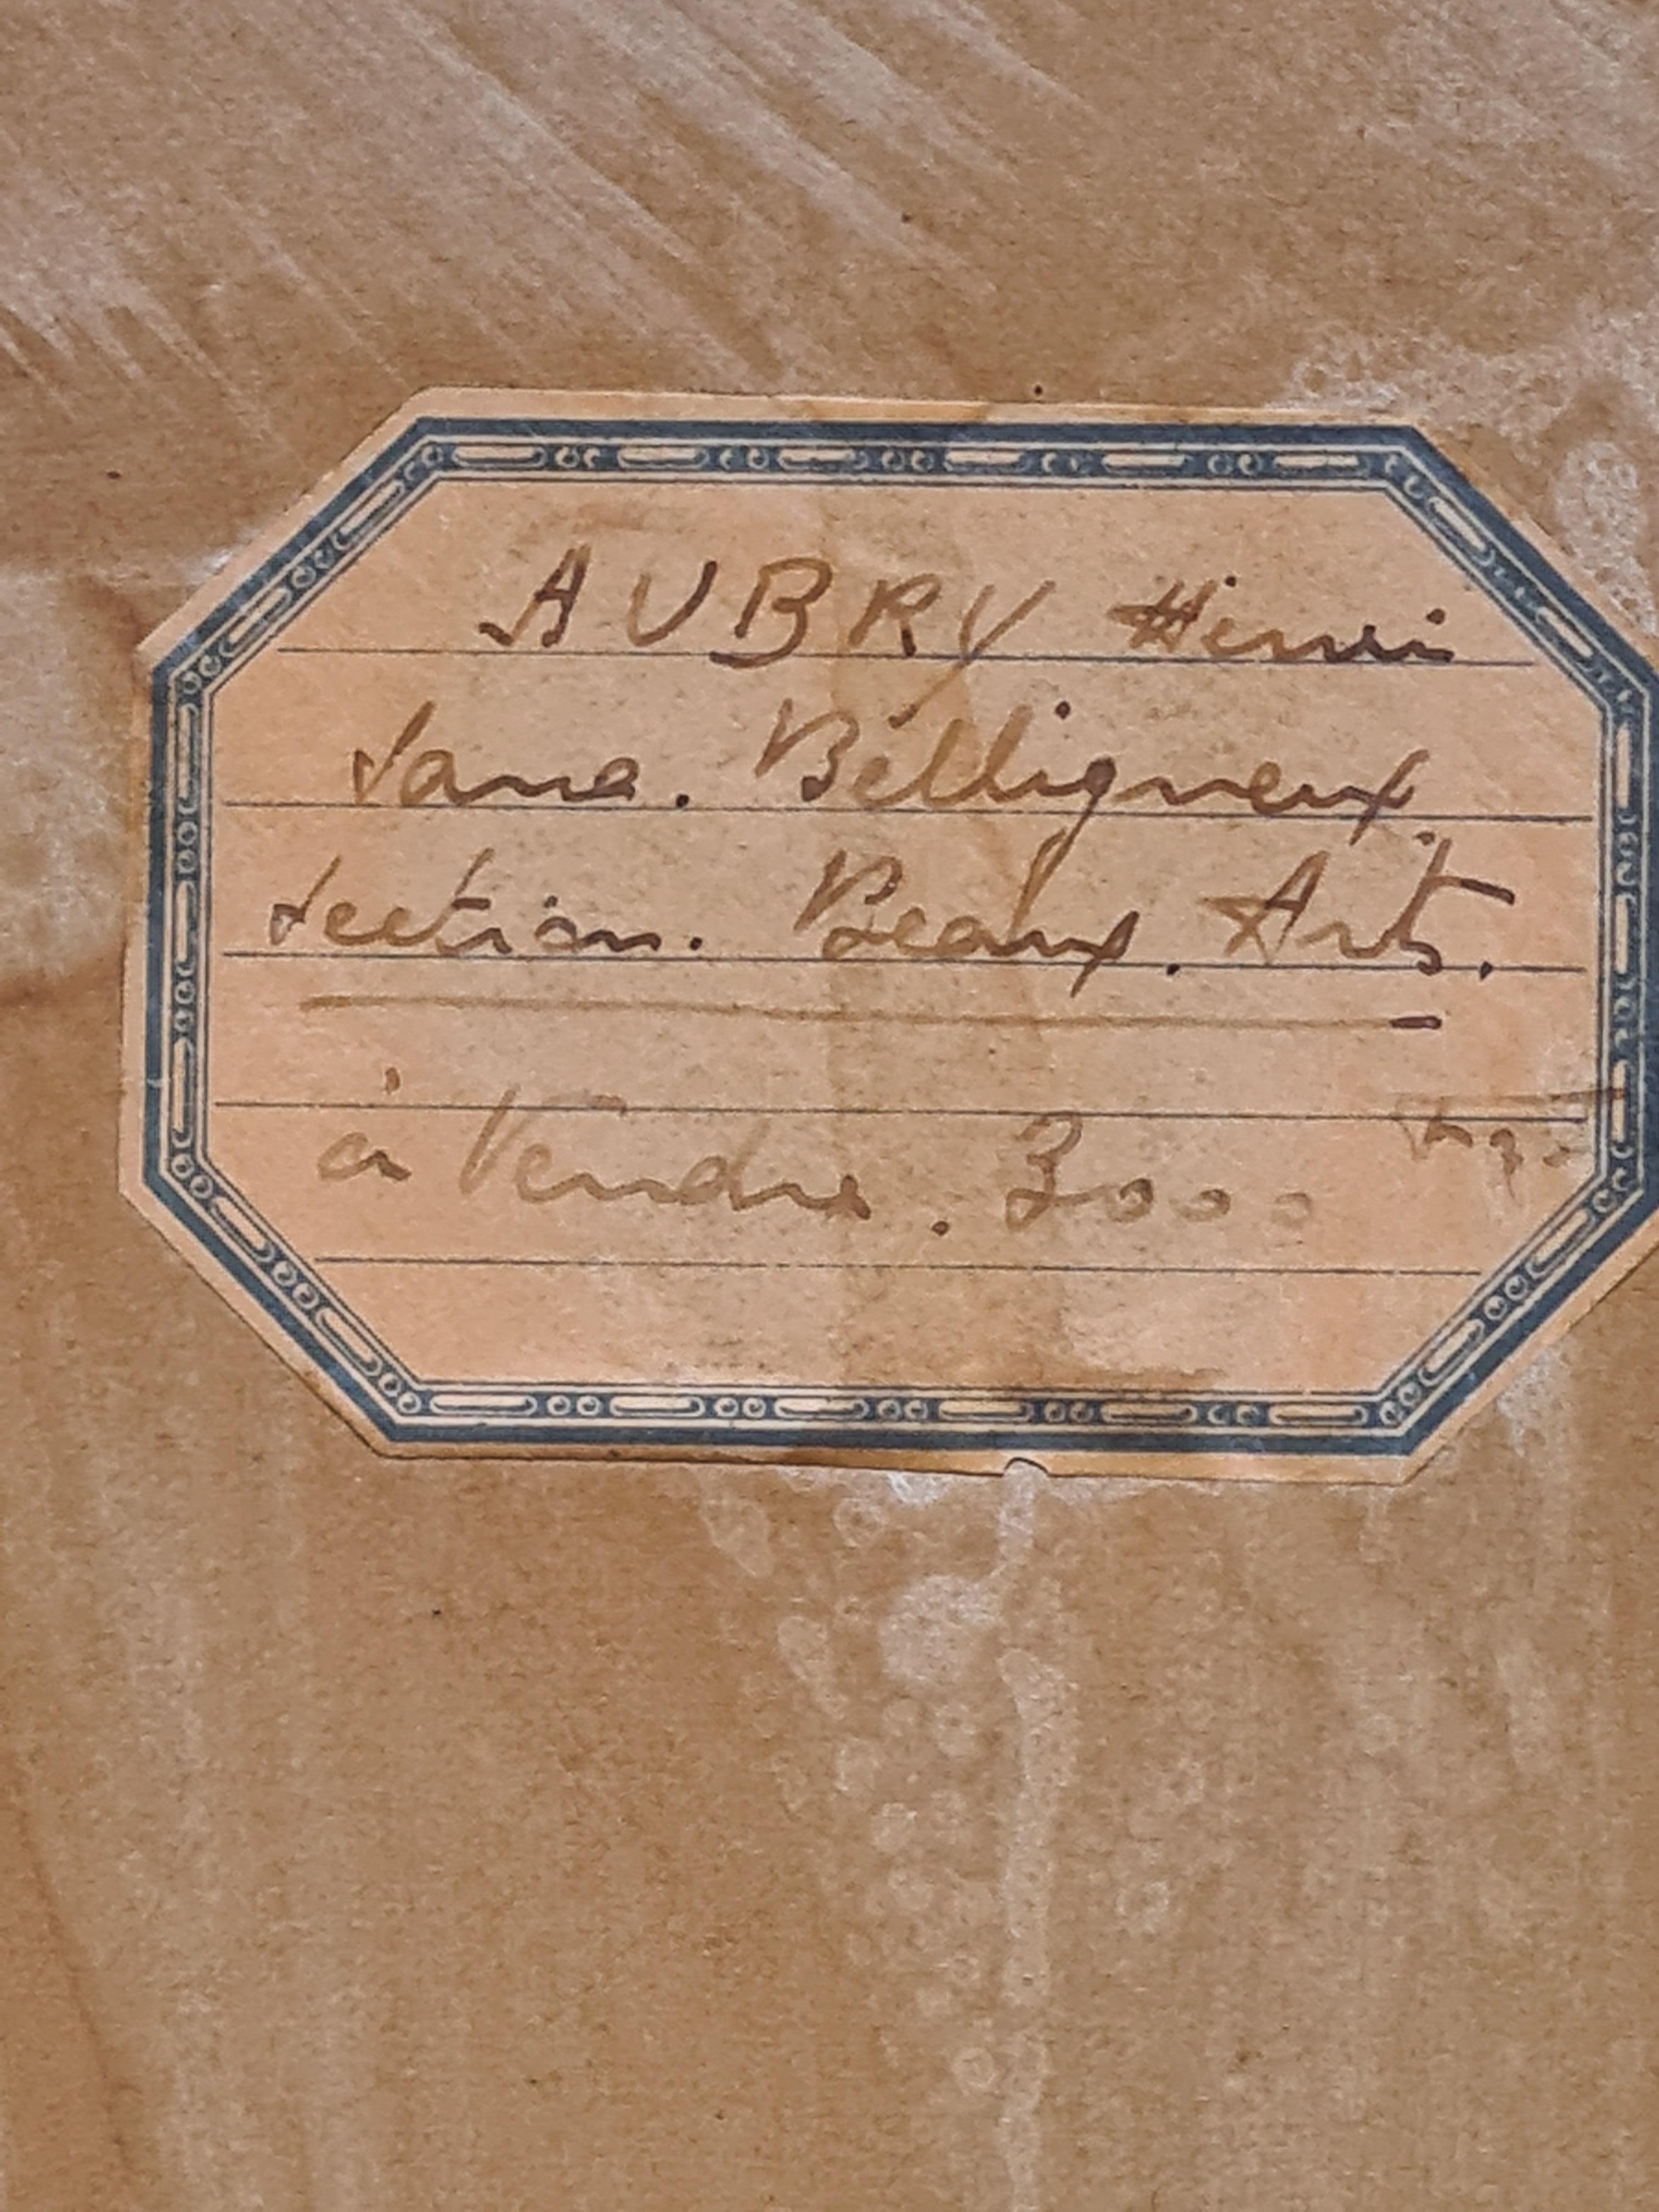 AUBRY Henri
Sana. Belligneux
Section. Beaux. Arts.
à Vendre. 3000